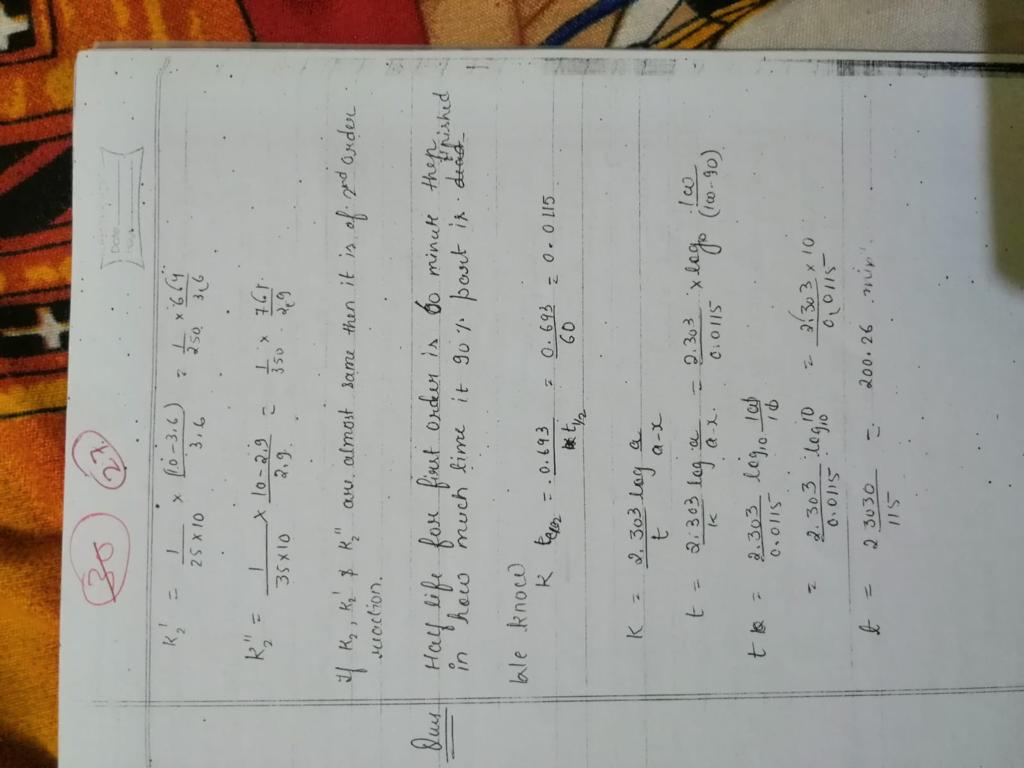 Date
30 27
K₂' = 1/(25×10) × (10-3.6)/3.6 = 1/250 × 6.4/3.6
K₂'' = 1/(35×10) × (10-2.9)/2.9 = 1/350 × 7.1/2.9
If K₂, K₂' & K₂'' are almost same then it is of 2nd order
reaction.
Ques Half life for first order is 60 minute then
in how much time it 90% part is finished
We know
K = 0.693/t1/2 = 0.693/60 = 0.0115
K = 2.303/t log a/(a-x)
t = 2.303/K log a/(a-x) = 2.303/0.0115 × log₁₀ 100/(100-90)
t = 2.303/0.0115 log₁₀ 100/10
= 2.303/0.0115 log₁₀ 10 = 2.303×10/0.0115
t = 23030/115 = 200.26 min